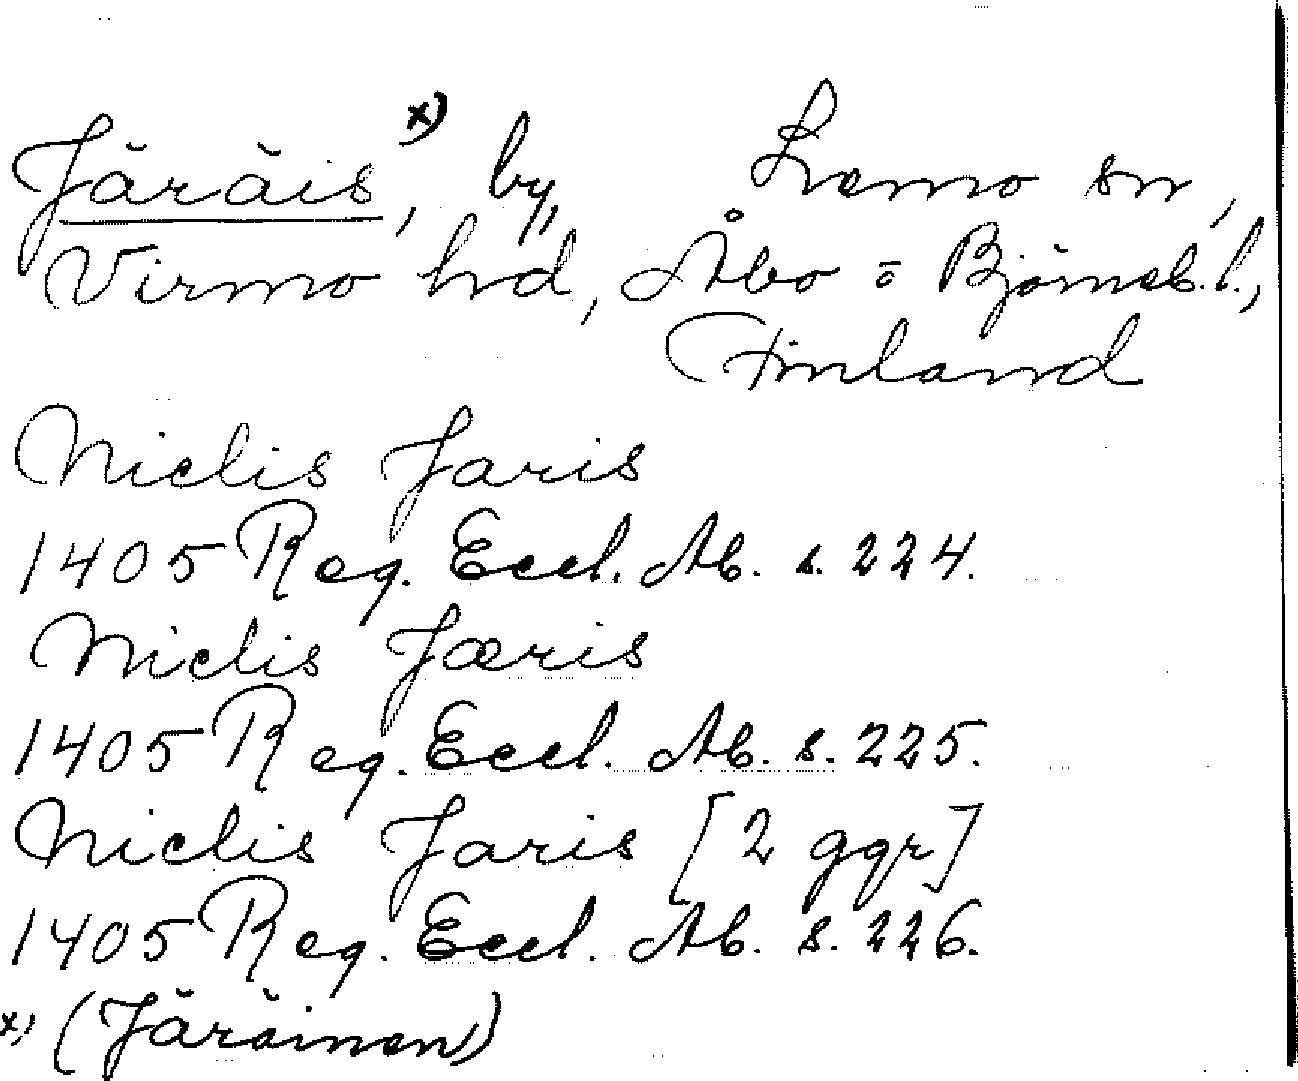 Järäis, x) by, Lemo sn,
Virmo hd, Åbo = Björneb. l.,
Finland
Niclis Jaris
1405 Reg. Eccl. Ab. s. 224.
Niclis Jæris
1405 Reg. Eccl. Ab. s. 225.
Niclis Jaris [2 ggr]
1405 Reg. Eccl. Ab. s. 226.
x) (Järäinen)